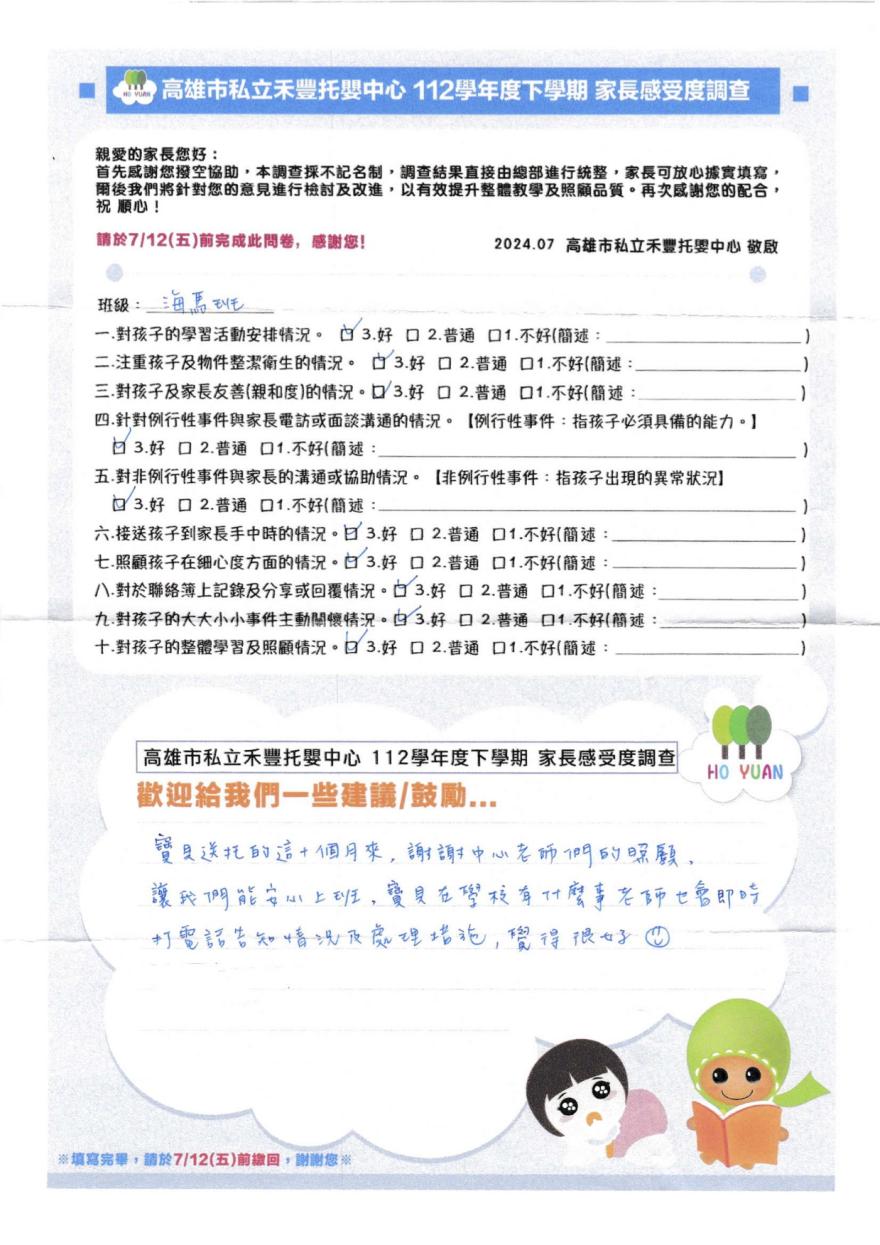 HO YUAN
高雄市私立禾豐托嬰中心 112學年度下學期 家長感受度調查
親愛的家長您好：
首先感謝您撥空協助，本調查採不記名制，調查結果直接由總部進行統整，家長可放心據實填寫，
爾後我們將針對您的意見進行檢討及改進，以有效提升整體教學及照顧品質。再次感謝您的配合，
祝 順心！
請於7/12(五)前完成此問卷，感謝您!
2024.07 高雄市私立禾豐托嬰中心 敬啟
班級：海馬班
一.對孩子的學習活動安排情況。 ☑ 3.好 □ 2.普通 □1.不好(簡述：)
二.注重孩子及物件整潔衛生的情況。 ☑ 3.好 □ 2.普通 □1.不好(簡述：)
三.對孩子及家長友善(親和度)的情況。☑ 3.好 □ 2.普通 □1.不好(簡述：)
四.針對例行性事件與家長電訪或面談溝通的情況。【例行性事件：指孩子必須具備的能力。】
☑ 3.好 □ 2.普通 □1.不好(簡述：)
五.對非例行性事件與家長的溝通或協助情況。【非例行性事件：指孩子出現的異常狀況】
☑ 3.好 □ 2.普通 □1.不好(簡述：)
六.接送孩子到家長手中時的情況。☑ 3.好 □ 2.普通 □1.不好(簡述：)
七.照顧孩子在細心度方面的情況。☑ 3.好 □ 2.普通 □1.不好(簡述：)
八.對於聯絡簿上記錄及分享或回覆情況。☑ 3.好 □ 2.普通 □1.不好(簡述：)
九.對孩子的大大小小事件主動關懷情況。☑ 3.好 □ 2.普通 □1.不好(簡述：)
十.對孩子的整體學習及照顧情況。☑ 3.好 □ 2.普通 □1.不好(簡述：)
高雄市私立禾豐托嬰中心 112學年度下學期 家長感受度調查
HO YUAN
歡迎給我們一些建議/鼓勵...
寶貝送托的這十個月來，謝謝中心老師們的照顧，
讓我們能安心上班，寶貝在學校有什麼事老師也會即時
打電話告知情況及處理措施，覺得很好☺
※填寫完畢，請於7/12(五)前繳回，謝謝您※